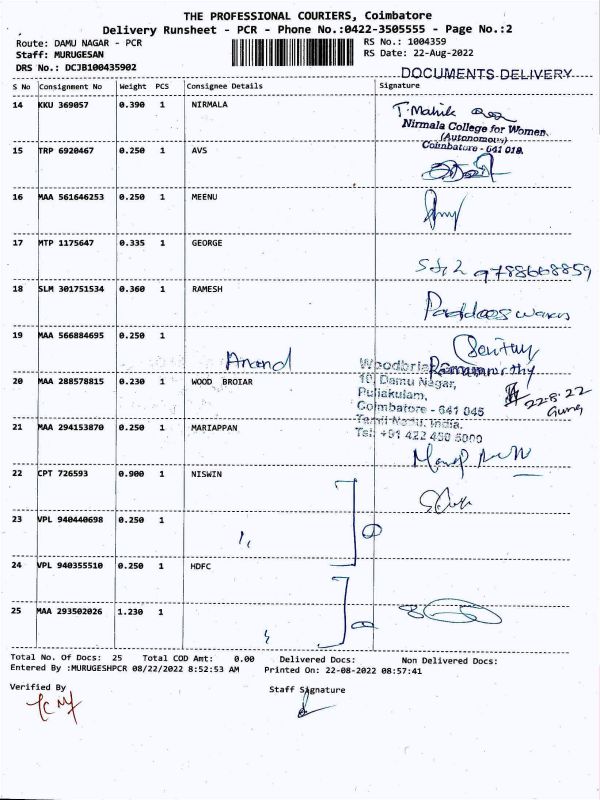 THE PROFESSIONAL COURIERS, Coimbatore
Delivery Runsheet - PCR - Phone No.:0422-3505555 - Page No.:2
Route: DAMU NAGAR - PCR RS No.: 1004359
Staff: MURUGESAN RS Date: 22-Aug-2022
DRS No.: DCJB100435902 DOCUMENTS DELIVERY
S No Consignment No Weight PCS Consignee Details Signature
14 KKU 369057 0.390 1 NIRMALA
Nirmala College for Women,
(Autonomous)
Coimbatore - 641 018.
15 TRP 6920467 0.250 1 AVS
16 MAA 561646253 0.250 1 MEENU
17 MTP 1175647 0.335 1 GEORGE
9788668859
18 SLM 301751534 0.360 1 RAMESH
19 MAA 566884695 0.250 1
Anand
Ramamurthy
20 MAA 288578815 0.230 1 WOOD BROIAR
10, Damu Nagar,
Puliakulam,
Coimbatore - 641 045
Tamil Nadu, India.
Tel: +91 422 450 5000
22-8-22
21 MAA 294153870 0.250 1 MARIAPPAN
22 CPT 726593 0.900 1 NISWIN
23 VPL 940440698 0.250 1
24 VPL 940355510 0.250 1 HDFC
25 MAA 293502026 1.230 1
Total No. Of Docs: 25 Total COD Amt: 0.00 Delivered Docs: Non Delivered Docs:
Entered By :MURUGESHPCR 08/22/2022 8:52:53 AM Printed On: 22-08-2022 08:57:41
Verified By Staff Signature